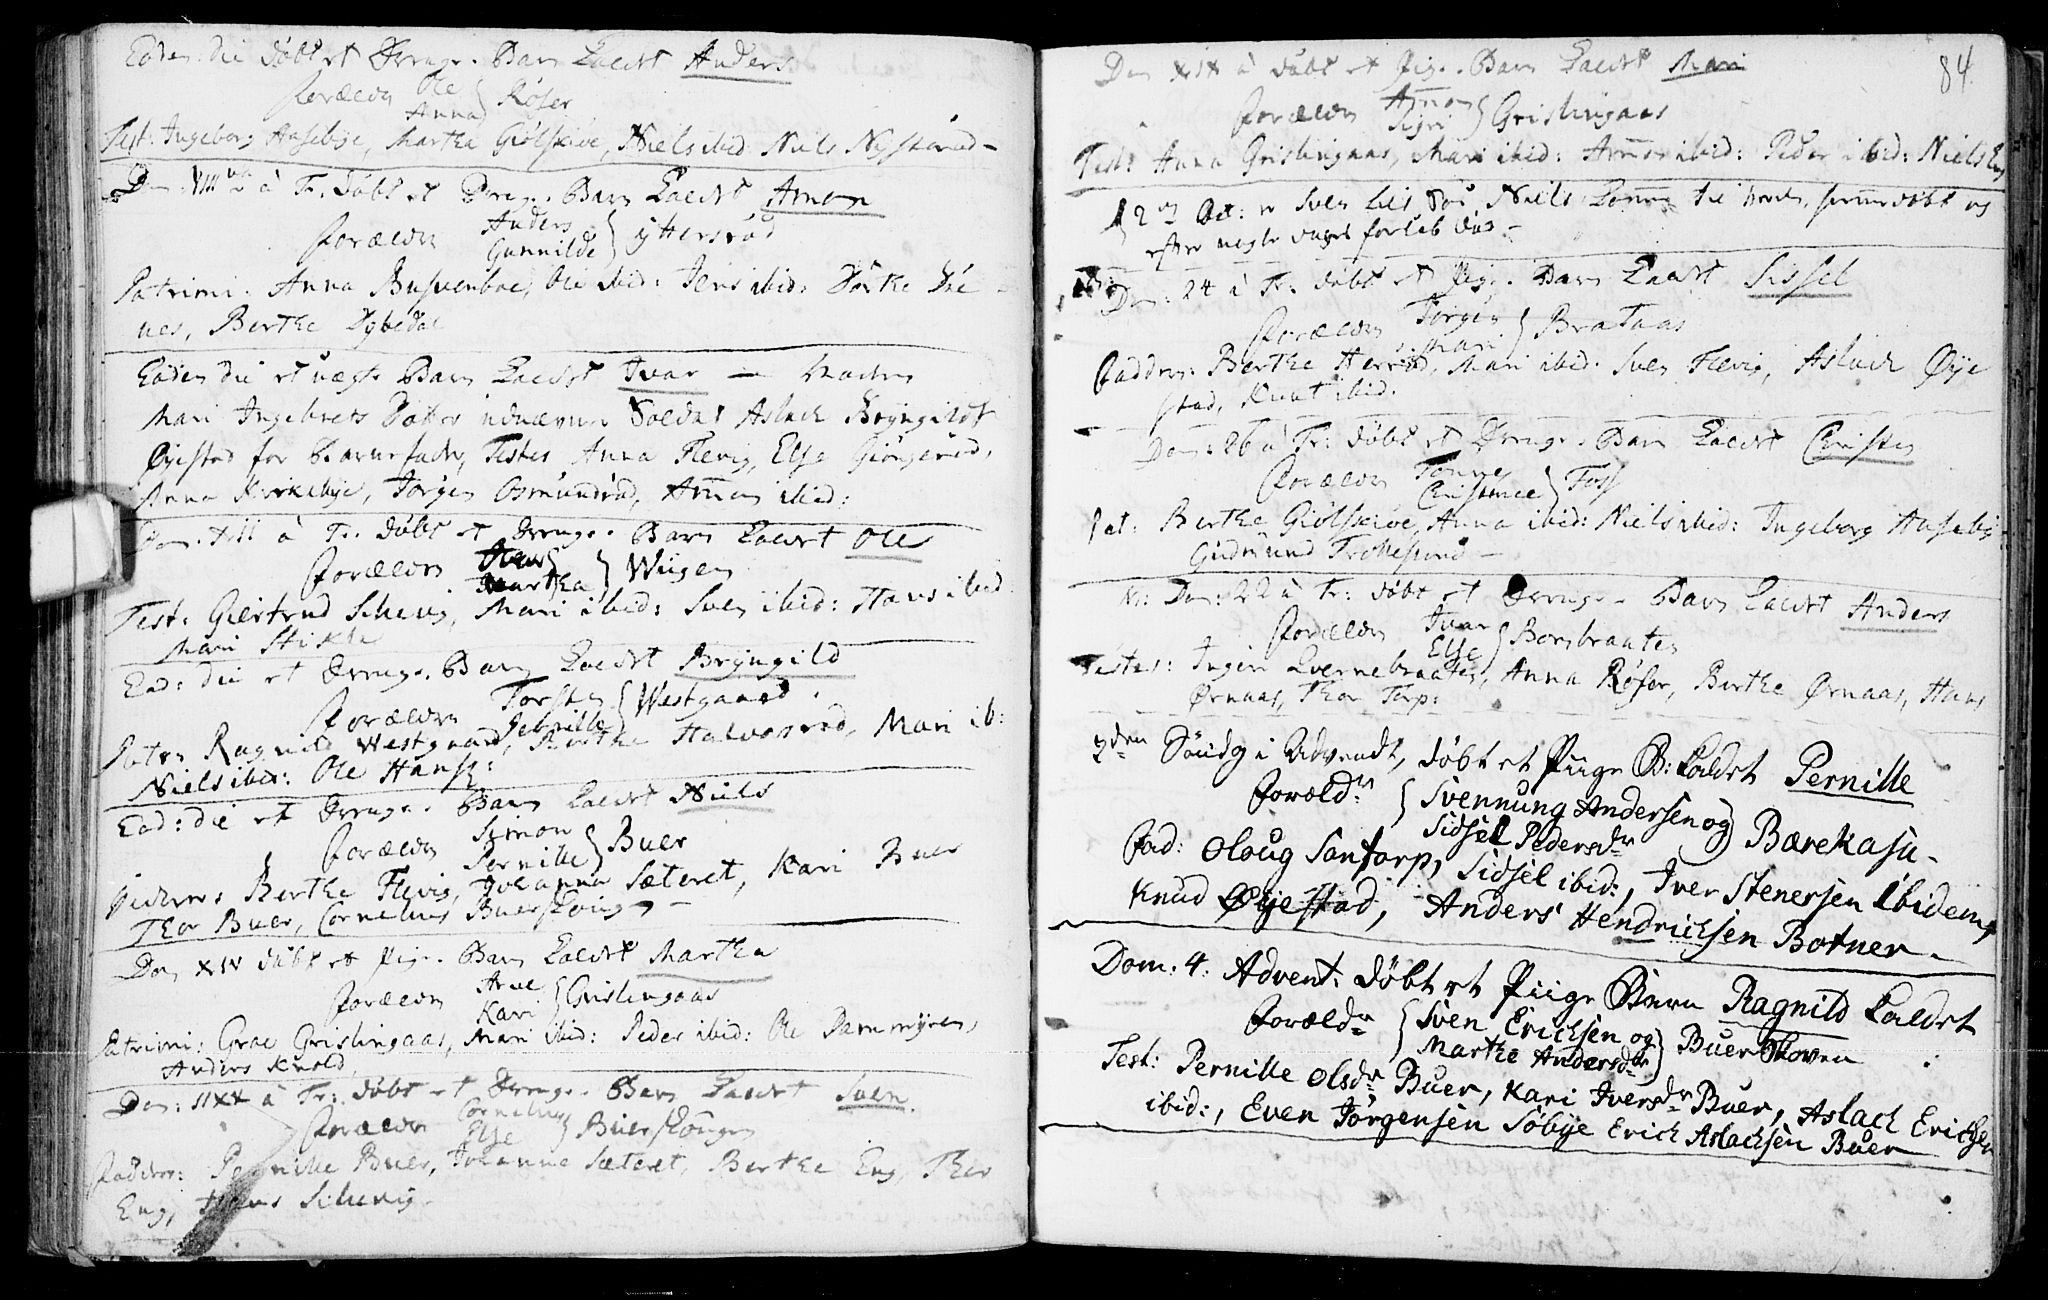 Eoden die døbt et Drenge-Barn kaldet Anders
Forældre Ole Anna } Røser
Test: Ingeborg Aasebye, Martha Giølstøe, Niels ibid: Niels Nystærud
Dom. VIII à Tr. døbt et Drenge-Barn kaldet Amon
Forældre Anders Gunnilde } Yttersrød
Patrini: Anna Buskenboe, Ole ibid: Jens ibid:
nes, Berthe Dybedal
Eoden die et uægte Barn kaldet Ivar — Moderen
Mari Ingebrets Datter udnævnte Soldat Aslach Bryngildt
Øyestad for Barnefader, Testes Anna Flevig, Else Giøngerød,
Anna Kirkebye, Jørgen Osmundrød, Amon ibid:
Dom. XII à Tr. døbt et Drenge-Barn kaldet Ole
Forældre Martha } Wiigen
Test: Giertrud Schevig, Mari ibid: Sven ibid: Hans ibid
Mari Stikle
Eod: die et Drenge-Barn kaldet Bryngild
Forældre Torsten Pernille } Westgaard
Patr: Ragnild Westgaard, Berthe Halvorsrød, Mari ib:
Niels ibid: Ole Hansen:
Eod: die et Drenge-Barn kaldet Niels
Forældre Simon Pernille } Buer
Faddere Berthe Flevig, Johanna Sæteret, Kari Buer
Thor Buer, Cornelius Buerskougen
Dom XIV døbt et Pige-Barn kaldet Martha
Forældre Arne Kari } Grislingaas
Patrini: Groe Grislingaas, Mari ibid: Peder ibid: Ole Dammyren,
Anders Knold
Dom: IIXX à Tr: døbt et Drenge-Barn kaldet Sven.
Forældre Cornelius Else } Buerskougen
Faddere: Pernille Buer, Johanne Sæteret, Berthe Eng, Thor
Eng, Hans Schevig.
84
Dom XIX à døbt et Pige-Barn kaldet Mari
Forældre Amon Sigri } Grislingaas
Test: Anna Grislingaas, Mari ibid: Amon ibid: Peder ibid: Niels Eng
12 Oct: er Sven Niels hiemmedøbt og
efter nogle dages forløb død —
Dom: 24 à Tr. døbt et Pige-Barn kaldet Sissel
Forældre Jørgen Mari } Brataas
Faddere: Berthe Herrød, Mari ibid: Sven Flevig, Aslach Øye
stad, Knut ibid.
Dom: 26 à Tr: døbt et Drenge-Barn kaldet Christen
Forældre Tonne Christence } Foss
Pat: Berthe Giølstøe, Anna ibid: Niels ibid: Ingeborg Aasebye
Gudmund Trollsrud —
Dom: 22 à Tr: døbt et Drenge-Barn kaldet Anders
Forældre Ivar Else } Borsbraaten
Testes: Ingeri Quernebraaten, Anna Røser, Berthe Ørnaas, Hans
Ørnaas, Thor Torp:
3den Søndg i Advendt, døbt et Piige B: kaldet Pernille
Foræld:r { Svennung Andersen og Sidsel Pedersdr } Bærekasa-
Fad: Oloug Santorp, Sidsel ibid:, Iver Stenersen ibidem,
Knud Øyestad, Anders Hendrichsen Botner.
Dom: 4: Advent: døbt et Piige Barn Ragnild kaldet
Foræld:r { Sven Erichsen og Marthe Andersdr } Buerskoven
Test: Pernille Olsdr Buer, Kari Iversdr Buer, Aslach Erichsen
ibid:, Even Jørgensen Søbye Erich Aslachsen Buer